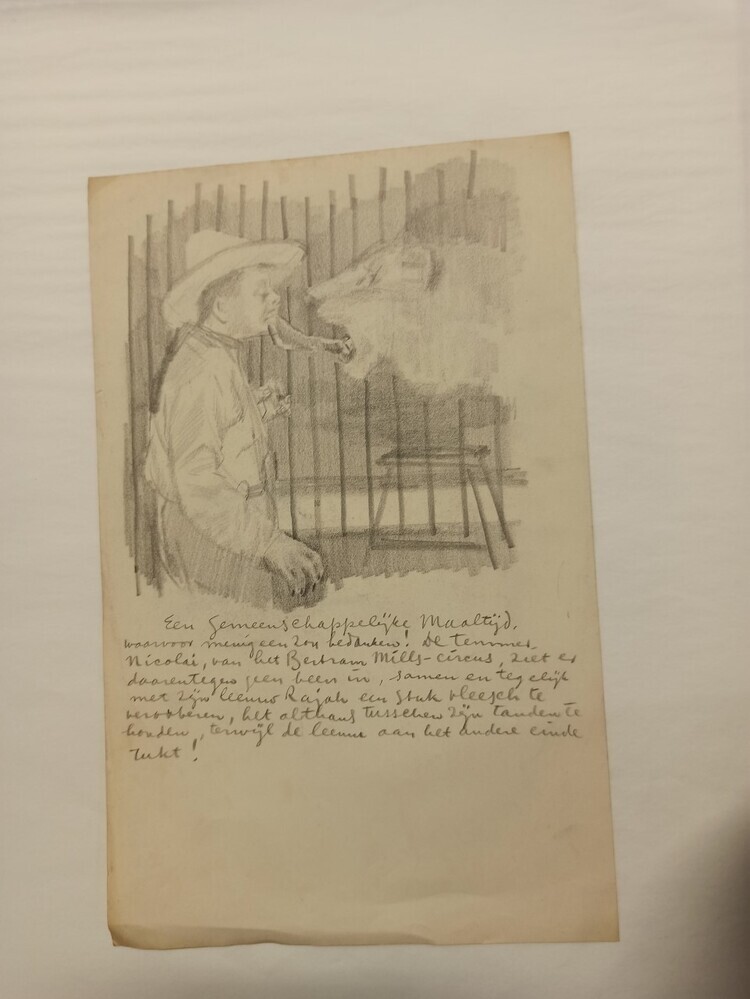 Een Gemeenschappelijke Maaltijd,
waarvoor menigeen zou bedanken! De temmer
Nicolai, van het Bertram Mills-circus, ziet er
daarentegen geen been in, samen en tegelijk
met zijn leeuw Rajah een stuk vleesch te
althans tusschen zijn tanden te
houden, terwijl de leeuw aan het andere einde
rukt!